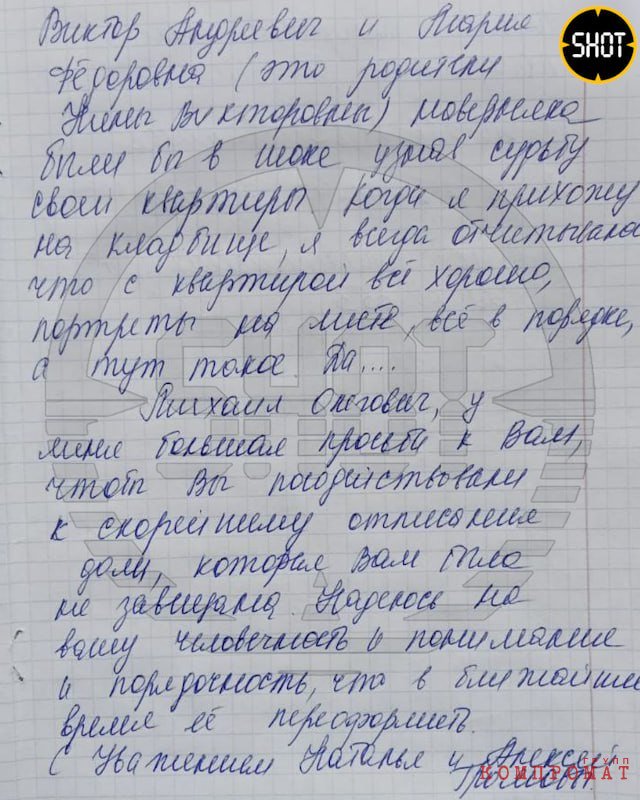 SHOT
Виктор Андреевич и Мария
Фёдоровна (это родители
Нины Викторовны) наверняка
были бы в шоке узнав судьбу
своей квартиры Когда я прихожу
на кладбище, я всегда отчитываюсь
что с квартирой всё хорошо,
портреты на месте, всё в порядке,
а тут такое. Да....
Михаил Олегович, у
меня большая просьба к Вам,
чтобы Вы посодействовали
к скорейшему отписанию
доли, которая Вам была
не завещана. Надеюсь на
вашу человечность и понимание
и порядочность, что в ближайшее
время её переоформить.
С Уважением Наталья и Алексей
SHOT
групп
КОМПРОМАТ